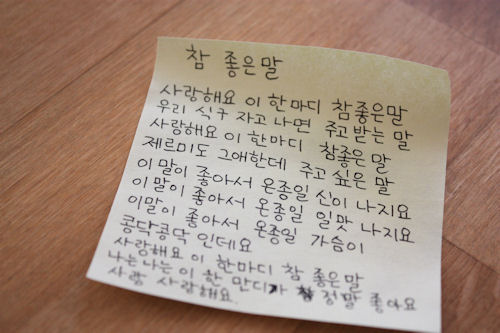 참 좋은말
사랑해요 이 한마디 참좋은말
우리 식구 자고 나면 주고 받는 말
사랑해요 이 한마디 참좋은 말
제르미도 그애한데 주고 싶은 말
이말이 좋아서 온종일 신이 나지요
이말이 좋아서 온종일 일맛 나지요
이말이 좋아서 온종일 가슴이
콩닥콩닥 인데요
사랑해요 이 한마디 참 좋은말
나는 나는 이 한 만디가 정말 좋아요
사랑 사랑해요